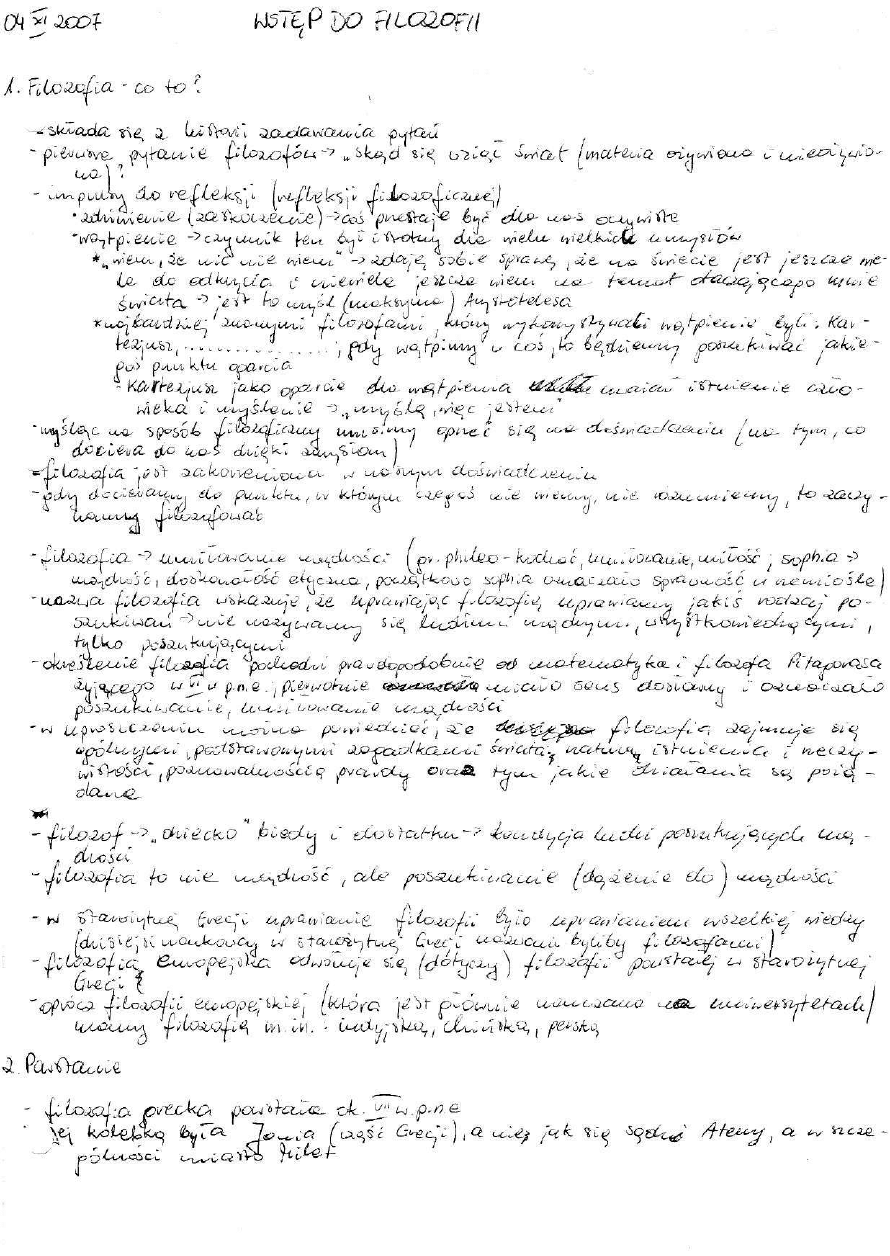 04 XI 2007 WSTĘP DO FILOZOFII
1. Filozofia - co to?
- składa się z historii zadawania pytań
- pierwsze pytanie filozofów → „skąd się wziął świat (materia ożywiona i nieożywio-
na)?
- impulsy do refleksji (refleksji filozoficznej)
• zdziwienie (zaskoczenie) → coś przestaje być dla nas oczywiste
• wątpienie → czynnik ten był istotny dla wielu wielkich umysłów
* „wiem, że nic nie wiem” → zdaję sobie sprawę, że na świecie jest jeszcze wie-
le do odkrycia i niewiele jeszcze wiem na temat otaczającego mnie
świata → jest to myśl (maksyma) Arystotelesa
* najbardziej znanymi filozofami, którzy wykorzystywali wątpienie byli: Kar-
tezjusz, ................; gdy wątpimy w coś, to będziemy poszukiwać jakie-
goś punktu oparcia
- Kartezjusz jako oparcie dla wątpienia uważał istnienie czło-
wieka i myślenie → „myślę, więc jestem”
- myśląc na sposób filozoficzny musimy oprzeć się na doświadczeniu (na tym, co
dociera do nas dzięki zmysłom)
- filozofia jest zakorzeniona w naszym doświadczeniu
- gdy docieramy do punktu, w którym czegoś nie wiemy, nie rozumiemy, to zaczy-
namy filozofować
- filozofia → umiłowanie mądrości (gr. phileo - kochać, umiłowanie, miłość; sophia →
mądrość, doskonałość etyczna, początkowo sophia oznaczało sprawność w rzemiośle)
- nazwa filozofia wskazuje, że uprawiając filozofię uprawiamy jakiś rodzaj po-
szukiwań → nie nazywamy się ludźmi mądrymi, wszystkowiedzącymi,
tylko poszukującymi
- określenie filozofia pochodzi prawdopodobnie od matematyka i filozofa Pitagorasa
żyjącego w VI w p.n.e.; pierwotnie miało sens dosłowny i oznaczało
poszukiwanie, umiłowanie mądrości
- w uproszczeniu można powiedzieć, że filozofia zajmuje się
ogólnymi, podstawowymi zagadkami świata, naturą istnienia i rzeczy-
wistości, poznawalnością prawdy oraz tym jakie działania są pożą-
dane
- filozof → „dziecko” biedy i dostatku → kondycja ludzi poszukujących mą-
drości
- filozofia to nie mądrość, ale poszukiwanie (dążenie do) mądrości
- w starożytnej Grecji uprawianie filozofii było uprawianiem wszelkiej wiedzy
(dzisiejsi naukowcy w starożytnej Grecji nazwani byliby filozofami)
- filozofia europejska odwołuje się (dotyczy) filozofii powstałej w starożytnej
Grecji
- oprócz filozofii europejskiej (która jest głównie nauczana na uniwersytetach)
mamy filozofię m.in.: indyjską, chińską, perską
2. Powstanie
- filozofia grecka powstała ok. VII w. p.n.e
- jej kolebką była Jonia (część Grecji), a nie, jak się sądzi Ateny, a w szcze-
gólności miasto Milet